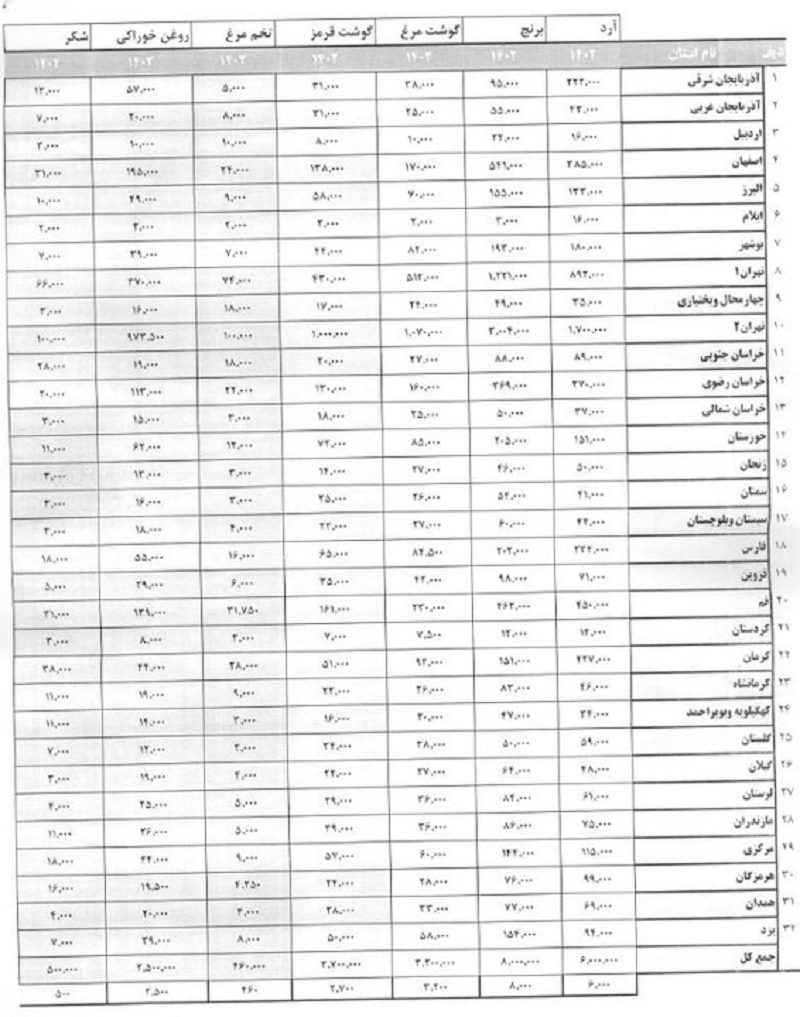 آرد برنج گوشت مرغ گوشت قرمز تخم مرغ روغن خوراکی شکر
ردیف نام استان ۱۴۰۲ ۱۴۰۲ ۱۴۰۲ ۱۴۰۲ ۱۴۰۲ ۱۴۰۲ ۱۴۰۲
۱ آذربایجان شرقی ۹۵,۰۰۰ ۳۸,۰۰۰ ۳۱,۰۰۰ ۵,۰۰۰ ۵۷,۰۰۰
۲ آذربایجان غربی ۵۵,۰۰۰ ۲۵,۰۰۰ ۸,۰۰۰ ۲۰,۰۰۰ ۷,۰۰۰
۳ اردبیل ۱۶,۰۰۰ ۲۲,۰۰۰ ۱۰,۰۰۰ ۸,۰۰۰ ۱۰,۰۰۰ ۱۰,۰۰۰
۴ اصفهان ۵۴۱,۰۰۰ ۱۷۰,۰۰۰ ۱۳۸,۰۰۰ ۲۴,۰۰۰ ۱۹۵,۰۰۰ ۳۱,۰۰۰
۵ البرز ۱۵۵,۰۰۰ ۷۰,۰۰۰ ۵۸,۰۰۰ ۹,۰۰۰ ۴۹,۰۰۰ ۱۰,۰۰۰
۶ ایلام ۱۶,۰۰۰ ۳,۰۰۰ ۲,۰۰۰ ۲,۰۰۰ ۲,۰۰۰ ۲,۰۰۰
۷ بوشهر ۱۸۰,۰۰۰ ۱۹۳,۰۰۰ ۸۴,۰۰۰ ۴۴,۰۰۰ ۷,۰۰۰ ۳۹,۰۰۰ ۷,۰۰۰
۸ تهران۱ ۱,۲۲۱,۰۰۰ ۵۱۲,۰۰۰ ۴۳۰,۰۰۰ ۷۴,۰۰۰ ۳۷۰,۰۰۰ ۶۶,۰۰۰
۹ چهارمحال وبختیاری ۳۵,۰۰۰ ۴۹,۰۰۰ ۲۴,۰۰۰ ۱۷,۰۰۰ ۱۸,۰۰۰ ۱۶,۰۰۰ ۳,۰۰۰
۱۰ تهران۲ ۱,۷۰۰,۰۰۰ ۳,۰۰۴,۰۰۰ ۱,۰۷۰,۰۰۰ ۱,۰۰۰,۰۰۰ ۱۰۰,۰۰۰ ۹۷۳,۵۰۰ ۱۰۰,۰۰۰
۱۱ خراسان جنوبی ۸۹,۰۰۰ ۸۸,۰۰۰ ۲۷,۰۰۰ ۲۰,۰۰۰ ۱۸,۰۰۰ ۱۹,۰۰۰ ۲۸,۰۰۰
۱۲ خراسان رضوی ۳۷۰,۰۰۰ ۳۶۹,۰۰۰ ۱۶۰,۰۰۰ ۱۳۰,۰۰۰ ۲۲,۰۰۰ ۱۱۳,۰۰۰ ۲۰,۰۰۰
۱۳ خراسان شمالی ۳۷,۰۰۰ ۵۰,۰۰۰ ۲۵,۰۰۰ ۱۸,۰۰۰ ۳,۰۰۰ ۱۵,۰۰۰ ۳,۰۰۰
۱۴ خوزستان ۱۵۱,۰۰۰ ۲۰۵,۰۰۰ ۸۵,۰۰۰ ۷۲,۰۰۰ ۱۲,۰۰۰ ۶۲,۰۰۰ ۱۱,۰۰۰
۱۵ زنجان ۵۰,۰۰۰ ۴۶,۰۰۰ ۲۷,۰۰۰ ۱۴,۰۰۰ ۳,۰۰۰ ۱۳,۰۰۰ ۳,۰۰۰
۱۶ سمنان ۴۱,۰۰۰ ۵۴,۰۰۰ ۲۶,۰۰۰ ۲۵,۰۰۰ ۳,۰۰۰ ۱۶,۰۰۰ ۳,۰۰۰
۱۷ سیستان وبلوچستان ۶۰,۰۰۰ ۲۷,۰۰۰ ۴,۰۰۰ ۱۸,۰۰۰ ۳,۰۰۰
۱۸ فارس ۲۰۲,۰۰۰ ۸۴,۵۰۰ ۶۵,۰۰۰ ۱۶,۰۰۰ ۵۵,۰۰۰ ۱۸,۰۰۰
۱۹ قزوین ۷۱,۰۰۰ ۹۸,۰۰۰ ۴۲,۰۰۰ ۳۵,۰۰۰ ۶,۰۰۰ ۲۹,۰۰۰ ۵,۰۰۰
۲۰ قم ۴۵۰,۰۰۰ ۴۶۲,۰۰۰ ۲۳۰,۰۰۰ ۱۶۱,۰۰۰ ۳۱,۷۵۰ ۱۳۹,۰۰۰ ۳۱,۰۰۰
۲۱ کردستان ۱۲,۰۰۰ ۱۲,۰۰۰ ۷,۵۰۰ ۷,۰۰۰ ۳,۰۰۰ ۸,۰۰۰ ۳,۰۰۰
۲۲ کرمان ۲۲۷,۰۰۰ ۱۵۱,۰۰۰ ۹۲,۰۰۰ ۵۱,۰۰۰ ۳۸,۰۰۰ ۴۴,۰۰۰ ۳۸,۰۰۰
۲۳ کرمانشاه ۴۶,۰۰۰ ۸۳,۰۰۰ ۲۶,۰۰۰ ۲۲,۰۰۰ ۹,۰۰۰ ۱۹,۰۰۰ ۱۱,۰۰۰
۲۴ کهگیلویه وبویراحمد ۳۴,۰۰۰ ۴۷,۰۰۰ ۲۰,۰۰۰ ۱۶,۰۰۰ ۳,۰۰۰ ۱۴,۰۰۰ ۱۱,۰۰۰
۲۵ گلستان ۵۹,۰۰۰ ۵۰,۰۰۰ ۳۸,۰۰۰ ۲۴,۰۰۰ ۳,۰۰۰ ۱۲,۰۰۰ ۷,۰۰۰
۲۶ گیلان ۴۸,۰۰۰ ۶۴,۰۰۰ ۲۷,۰۰۰ ۲۲,۰۰۰ ۴,۰۰۰ ۱۹,۰۰۰ ۳,۰۰۰
۲۷ لرستان ۶۱,۰۰۰ ۸۴,۰۰۰ ۳۶,۰۰۰ ۲۹,۰۰۰ ۵,۰۰۰ ۲۵,۰۰۰ ۴,۰۰۰
۲۸ مازندران ۷۵,۰۰۰ ۸۶,۰۰۰ ۳۶,۰۰۰ ۳۹,۰۰۰ ۵,۰۰۰ ۲۶,۰۰۰ ۱۱,۰۰۰
۲۹ مرکزی ۱۱۵,۰۰۰ ۱۴۴,۰۰۰ ۶۰,۰۰۰ ۵۷,۰۰۰ ۹,۰۰۰ ۴۴,۰۰۰ ۱۸,۰۰۰
۳۰ هرمزگان ۹۹,۰۰۰ ۷۶,۰۰۰ ۲۸,۰۰۰ ۲۴,۰۰۰ ۴,۲۵۰ ۱۹,۵۰۰ ۱۶,۰۰۰
۳۱ همدان ۶۹,۰۰۰ ۷۷,۰۰۰ ۳۳,۰۰۰ ۲۸,۰۰۰ ۴,۰۰۰ ۲۰,۰۰۰ ۴,۰۰۰
۳۲ یزد ۹۴,۰۰۰ ۱۵۴,۰۰۰ ۵۸,۰۰۰ ۵۰,۰۰۰ ۸,۰۰۰ ۳۹,۰۰۰ ۷,۰۰۰
جمع کل ۶,۰۰۰,۰۰۰ ۸,۰۰۰,۰۰۰ ۳,۲۰۰,۰۰۰ ۲,۷۰۰,۰۰۰ ۴۶۰,۰۰۰ ۲,۵۰۰,۰۰۰ ۵۰۰,۰۰۰
۶,۰۰۰ ۸,۰۰۰ ۳,۲۰۰ ۲,۷۰۰ ۴۶۰ ۲,۵۰۰ ۵۰۰